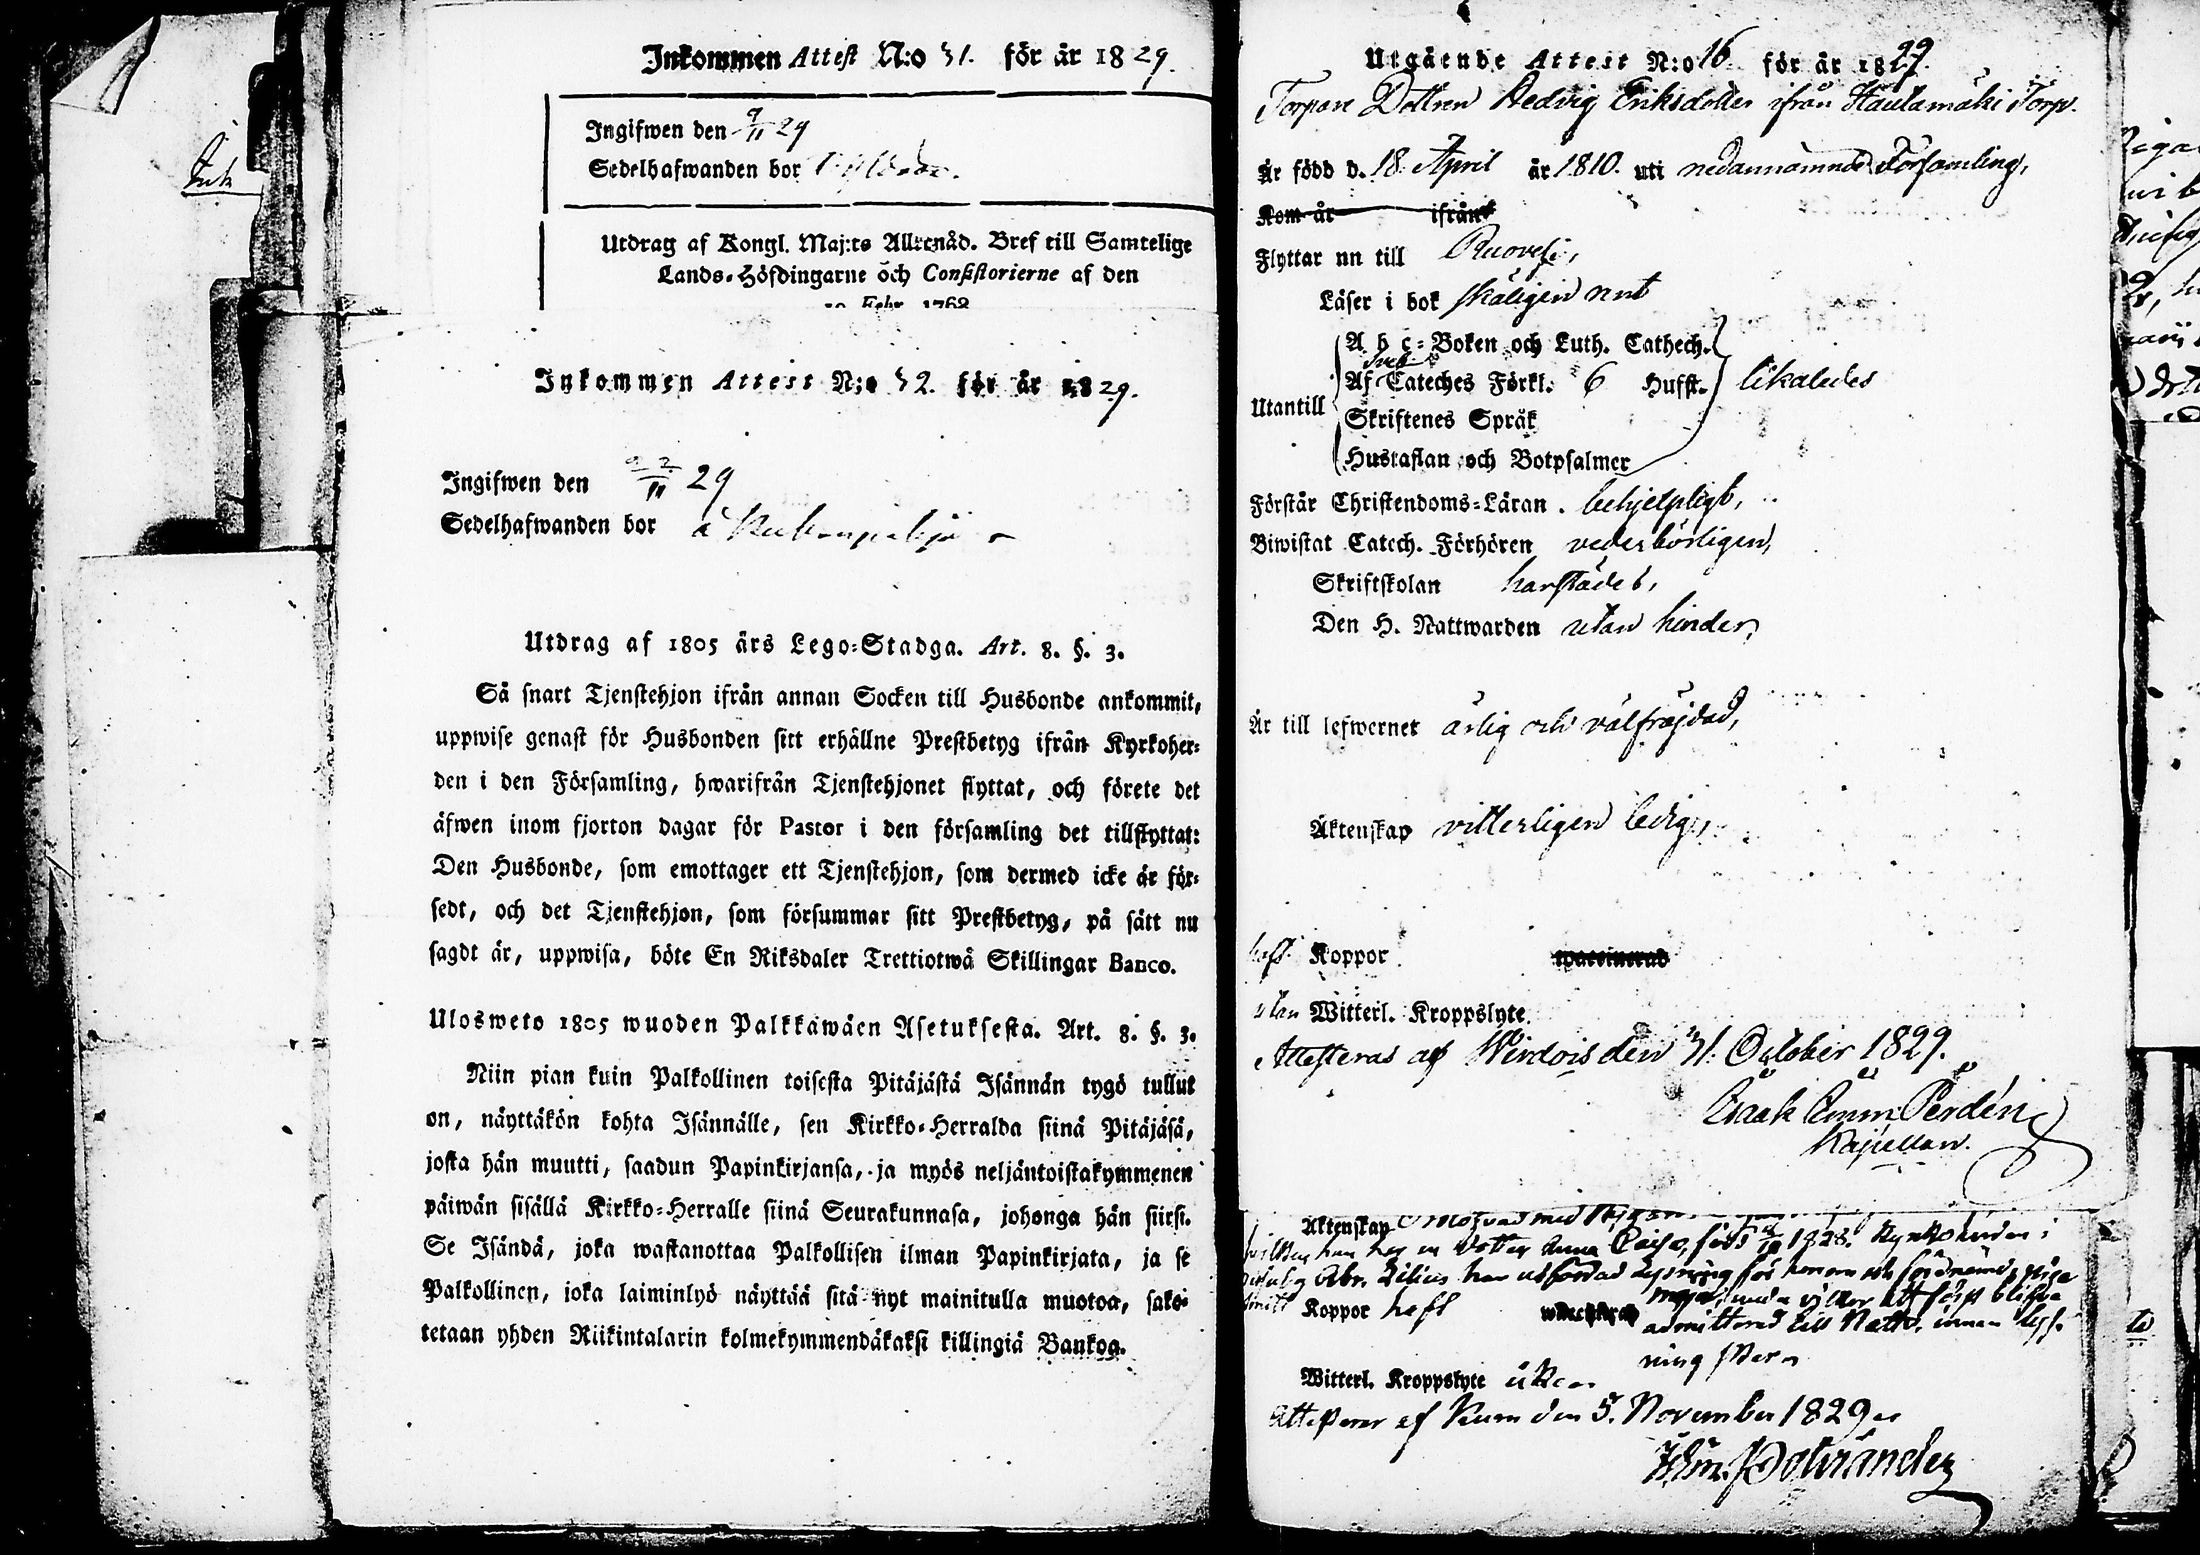 Inkommen Attest N:o 51. för år 1829.
Ingifwen den 9/11 29
Sedelhafwanden bor
Utdrag af Kongl. Maj:ts Allernåd. Bref till Samtelige
Lands-Höfdingarne och Consistorierne af den
Febr. 1762
Inkommen Attest N:o 52. för år 1829.
Ingifwen den 29
Sedelhafwanden bor å
Utdrag af 1805 års Lego-Stadga. Art. 8. §. 3.
Så snart Tjenstehjon ifrån annan Socken till Husbonde ankommit,
uppwise genast för Husbonden sitt erhållne Prestbetyg ifrån Kyrkoher-
den i den Församling, hwarifrån Tjenstehjonet flyttat, och förete det
äfwen inom fjorton dagar för Pastor i den församling det tillflyttat:
Den Husbonde, som emottager ett Tjenstehjon, som dermed icke är för-
sedt, och det Tjenstehjon, som försummar sitt Prestbetyg, på sätt nu
sagdt är, uppwisa, böte En Riksdaler Trettiotwå Skillingar Banco.
Ulosweto 1805 wuoden Palkkawäen Asetuksesta. Art. 8. §. 3.
Niin pian kuin Palkollinen toisesta Pitäjästä Isännän tygö tullut
on, näyttäkön kohta Isännälle, sen Kirkko-Herralda siinä Pitäjäsä,
josta hän muutti, saadun Papinkirjansa, ja myös neljäntoistakymmenen
päiwän sisällä Kirkko-Herralle siinä Seurakunnasa, johonga hän siirsi.
Se Isändä, joka wastanottaa Palkollisen ilman Papinkirjata, ja se
Palkollinen, joka laiminlyö näyttää sitä nyt mainitulla muotoa, sako-
tetaan yhden Riikintalarin kolmekymmendäkaksi killingiä Bankoa.
Utgående Attest N:o 16 för år 1829.
Torpare Dottren Hedvig Eriksdotter ifrån Hautamäki Torp.
Är född d. 18. April år 1810. uti nedannämnde Församling,
Kom år ifrån
Flyttar nu till Ruovesi,
Läser i bok skäligen rent
A b c-Boken och Luth. Cathech.
Sveb.
Af Cateches Förkl. 6 Hufst. likaledes
Utantill
Skriftenes Språk
Hustaflan och Botpsalmer
Förstår Christendoms-Läran. behjelpligt,
Biwistat Catech. Förhören vederbörligen,
Skriftskolan härstädes,
Den H. Nattwarden utan hinder,
Är till lefwernet ärlig och välfräjdad,
Äktenskap vitterligen ledig,
haft Koppor waccinerad
utan Witterl. Kroppslyte
Attesteras af Wirdois den 31. October 1829.
Isaak Emm. Perdén
Kapellan.
Äktenskap
han har en dotter Anna Caisa, född 1828. Kyrkoherden i
Abr. Lilius har utfärdad lysning för honom och
med vilkor att först blifwa
Koppor haft admitterad till Nattv. innan lys-
ning sker
Witterl. Kroppslyte
Attesterar af Keuru den 5. November 1829